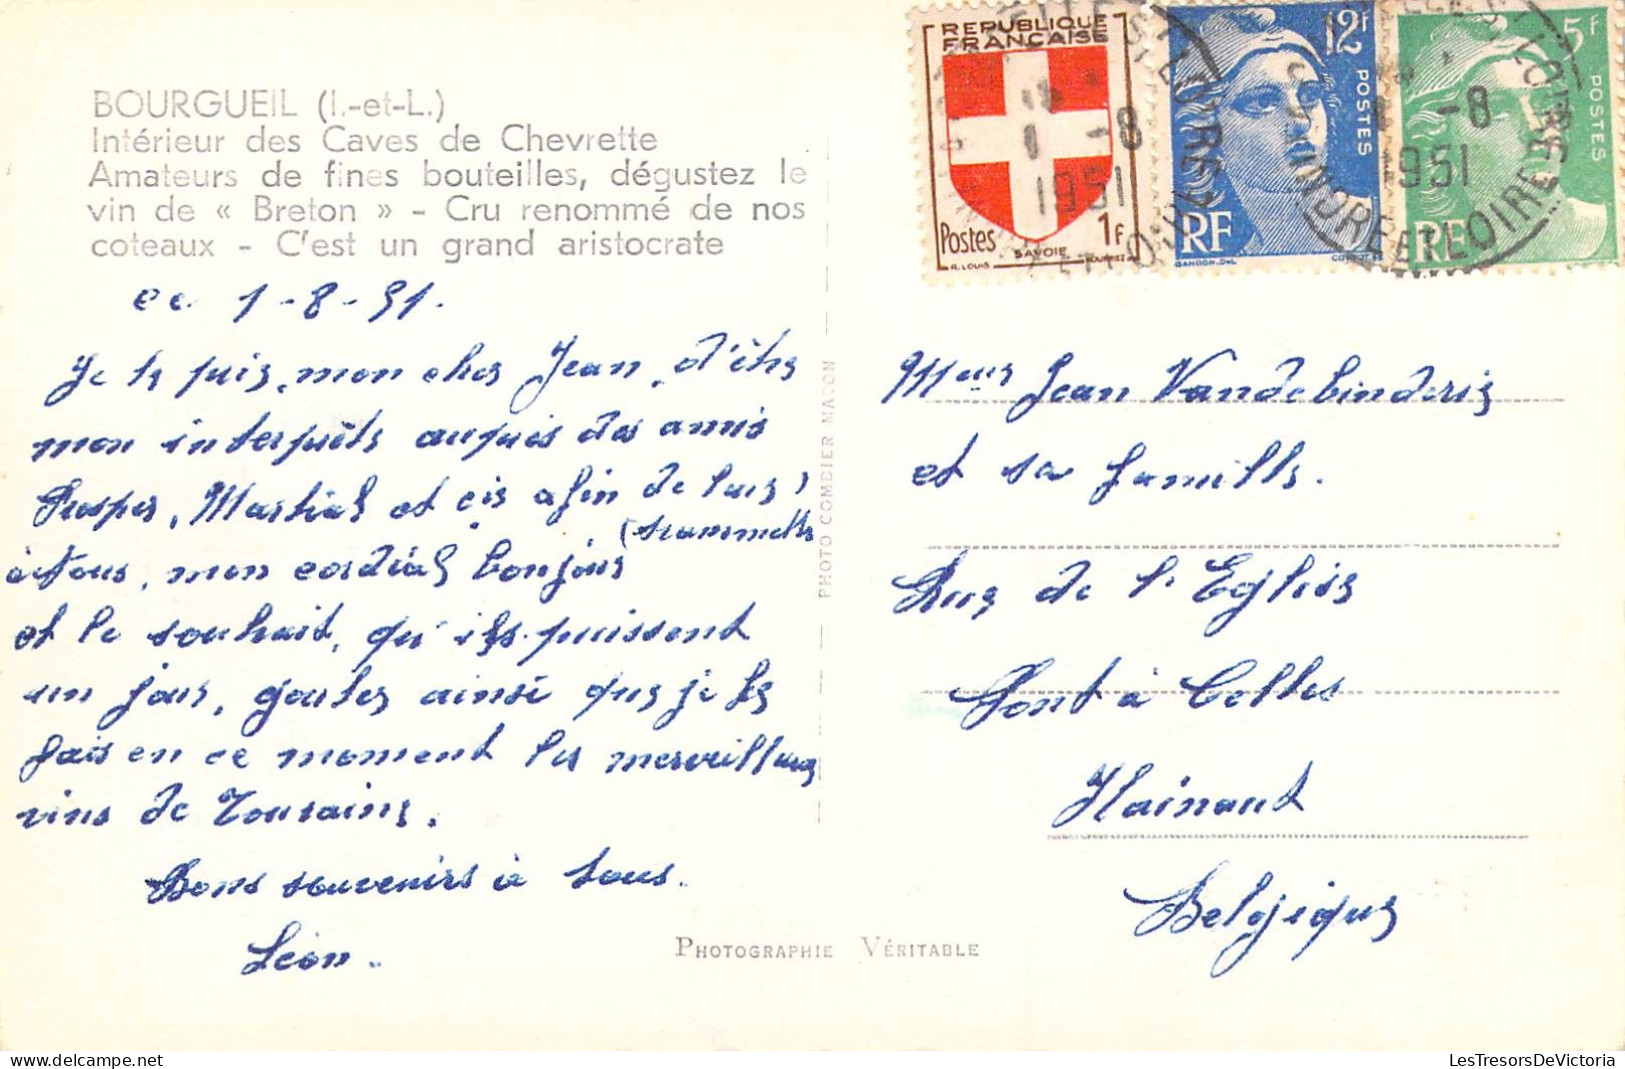 BOURGUEIL (I.-et-L.)
Intérieur des Caves de Chevrette
Amateurs de fines bouteilles, dégustez le
vin de « Breton » - Cru renommé de nos
coteaux - C'est un grand aristocrate
ce 1-8-51.
Je te prie, mon cher Jean, d'être
mon interprète auprès des amis
Prosper, Martial et afin de leurs
(transmettre
à tous, mon cordial bonjour
et le souhait, qu'ils puissent
un jour, goûter ainsi que je le
fais en ce moment les merveilleux
vins de Touraine.
Bons souvenirs à tous.
Léon.
PHOTO COMBIER MACON
PHOTOGRAPHIE VÉRITABLE
REPUBLIQUE
FRANCAISE
Postes 1F
SAVOIE
R. LOUIS
12F
POSTES
RF
GANDON-DEL.
5F
POSTES
RF
1 -8
1951
INDRE ET LOIRE
1 -8
1951
INDRE ET LOIRE
Jean Vandebinderie
et sa famille.
Rue de l'Eglise
Pont à Celles
Hainaut
Belgique
LesTresorsDeVictoria